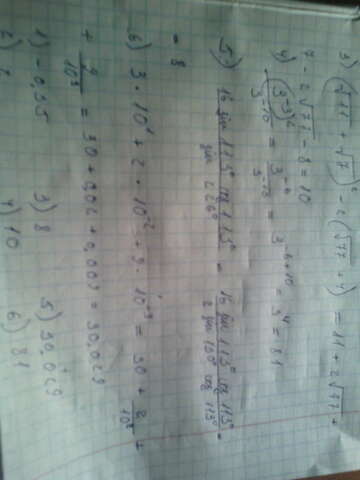 3) (√11 + √7)² - 2(√77 + 4) = 11 + 2√77 +
7 - 2√77 - 8 = 10
4) (3⁻³)² / 3⁻¹⁰ = 3⁻⁶ / 3⁻¹⁰ = 3⁻⁶⁺¹⁰ = 3⁴ = 81
5) 16 sin 113° cos 113° / sin 226° = 16 sin 113° cos 113° / 2 sin 113° cos 113° =
= 8
6) 3 · 10¹ + 2 · 10⁻² + 9 · 10⁻³ = 30 + 2/10² +
+ 9/10³ = 30 + 0,02 + 0,009 = 30,029
1) -0,35 3) 8 5) 30,029
4) 10 6) 81